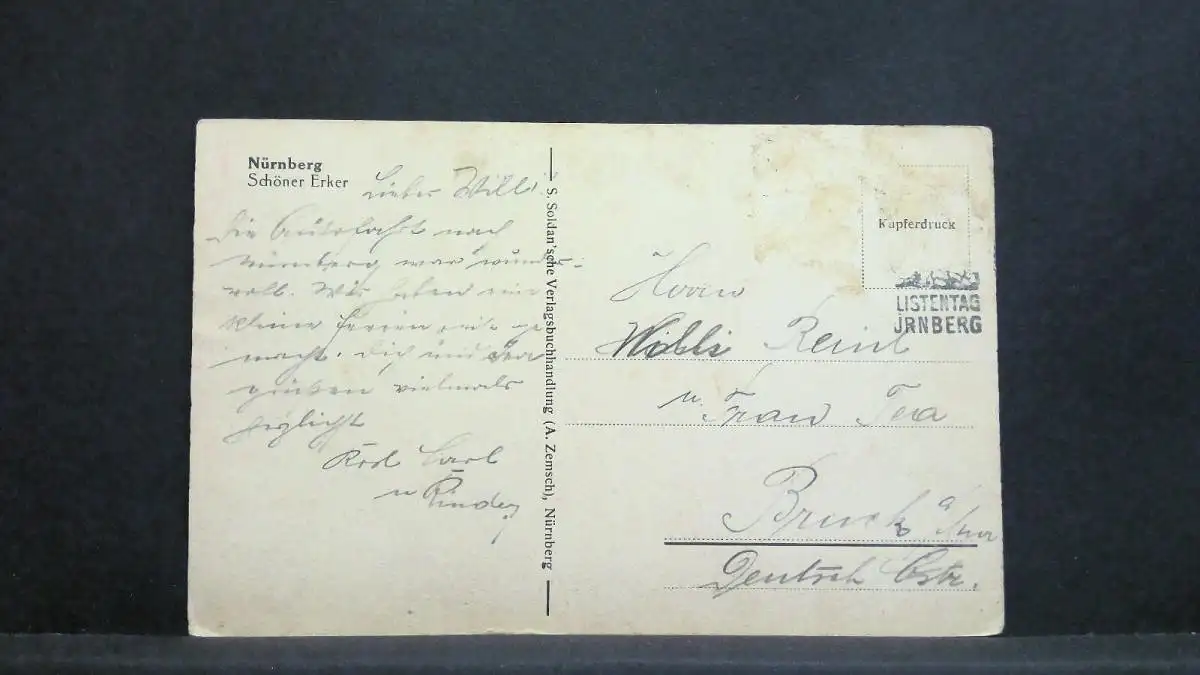 Nürnberg
Schöner Erker
Lieber Willi
Die Autofahrt nach
Nürnberg war wunder-
voll. Wir haben eine
kleine Ferien
macht. Dich und Tea
grüßen vielmals
herzlichst
Carl
u Kinder
S. Soldan'sche Verlagsbuchhandlung (A. Zemsch), Nürnberg
Kupferdruck
LISTENTAG
ÜRNBERG
Herrn
Willi Reinl
u. Frau Tea
Bruck a/Mur
Deutsch Östr.